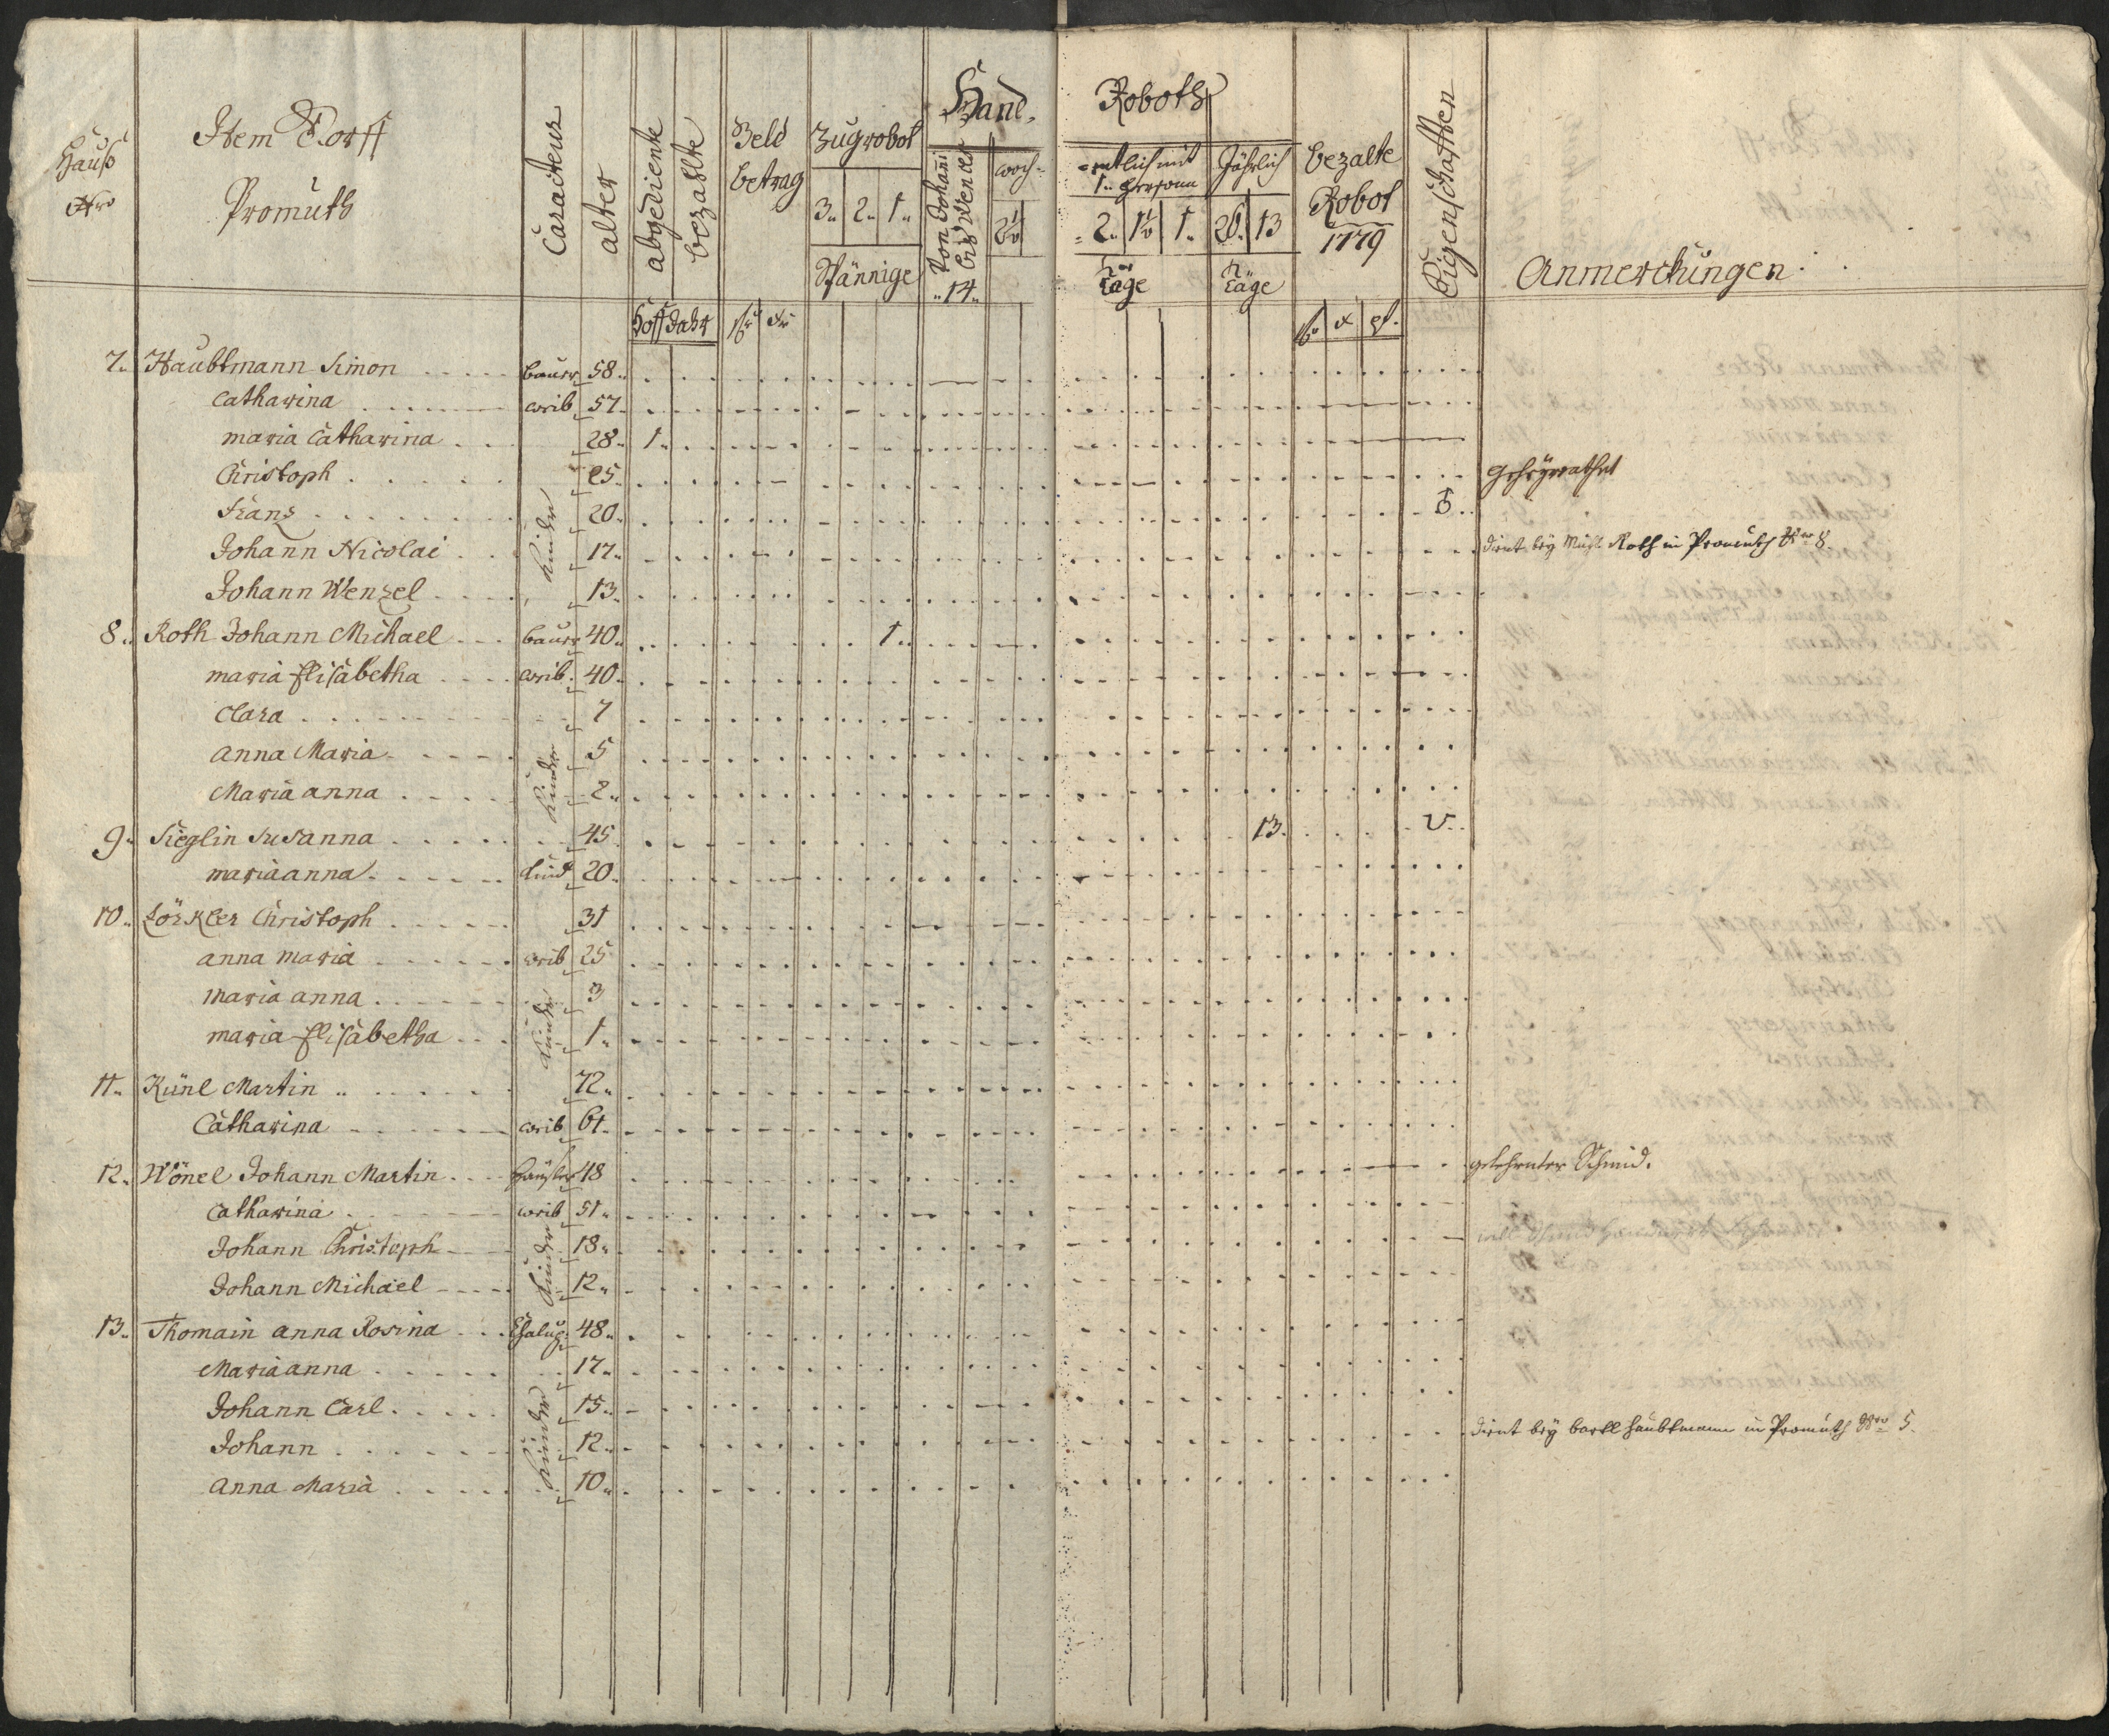 Hauß Nro
Item Dorff Promuth
Caracteur
alter
abgediente
bezahlte
Hoff Jahr
Geld betrag
fl xr
Zugrobot
3. 2. 1.
Spännige
Hand-
Von Johañi bis Wencesl
14
woch-
2½
Roboth
-entlich mit 1. Person
2. 1½ 1.
Täge
Jährlich
26. 13
Täge
bezalte Robot 1779
fl x pf.
Eigenschafften
Anmerckungen
7. Haubtmann Simon baur 58.
Catharina weib 57.
maria Catharina 28. 1.
Christoph 25. geheyrathet
Franz 20.
Kinder
Johann Nicolai 17. dient bey Michl Roth in Promuth Nro 8.
Johann Wenzel 13.
8. Roth Johann Michael baur 40. 1.
maria Elisabetha weib 40.
Clara 7
anna Maria 5
Kinder
Maria anna 2.
9. Sieglin Susanna 45 13. V.
maria anna kind 20.
10. Lörkler Christoph 31
anna maria weib 25
maria anna 3
Kinder
maria Elisabetha 1.
11. Künl Martin 72.
Catharina weib 61.
12. Wönel Johann Martin häusler 48 gelehrnter Schmid.
Catharina weib 51.
Johann Christoph 18.
Kinder
Johann Michael 12.
13. Thomain anna Rosina Chalup: 48.
Maria anna 17.
Johann Carl 15.
Kinder
Johann 12. dient bey bartl haubtmann in Promuth Nro 5.
Anna Maria 10.